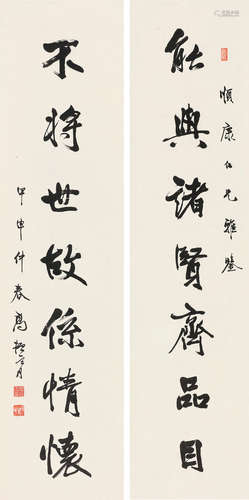 順康仁兄雅鑒
能與諸賢齊品目
不將世故係情懷
甲申仲春